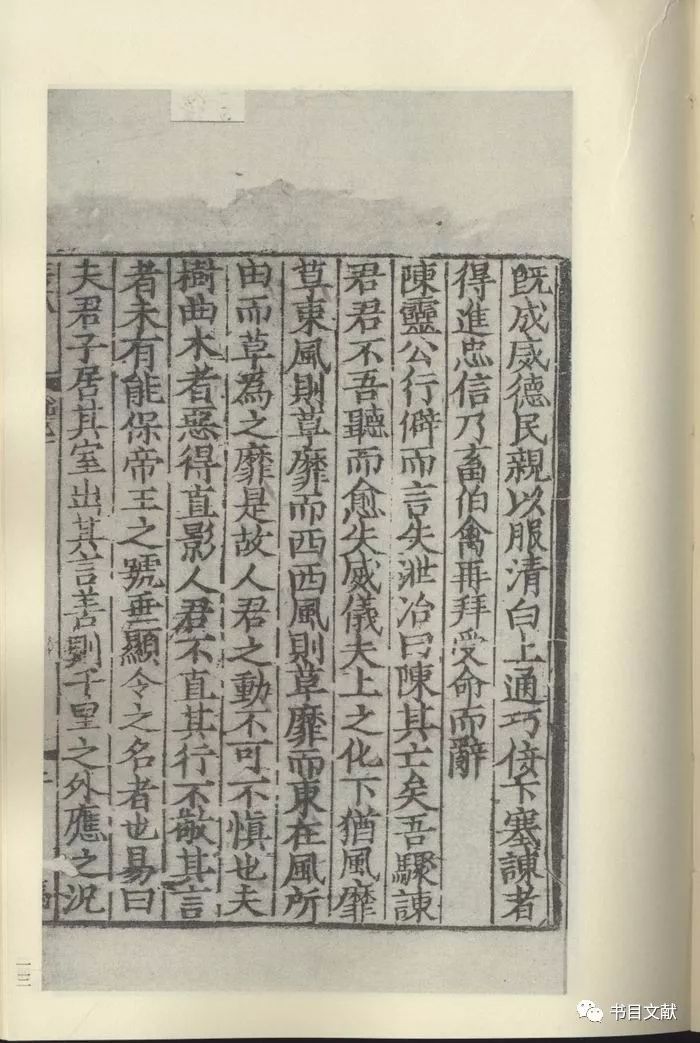 既成威德民親以服清白上通巧佞下塞諫者
得進忠信乃畜伯禽再拜受命而辭
陳靈公行僻而言失泄冶曰陳其亡矣吾驟諫
君君不吾聽而愈失威儀夫上之化下猶風靡
草東風則草靡而西西風則草靡而東在風所
由而草為之靡是故人君之動不可不慎也夫
樹曲木者惡得直影人君不直其行不敬其言
者未有能保帝王之號垂顯令之名者也易曰
夫君子居其室出其言善則千里之外應之況
书目文献